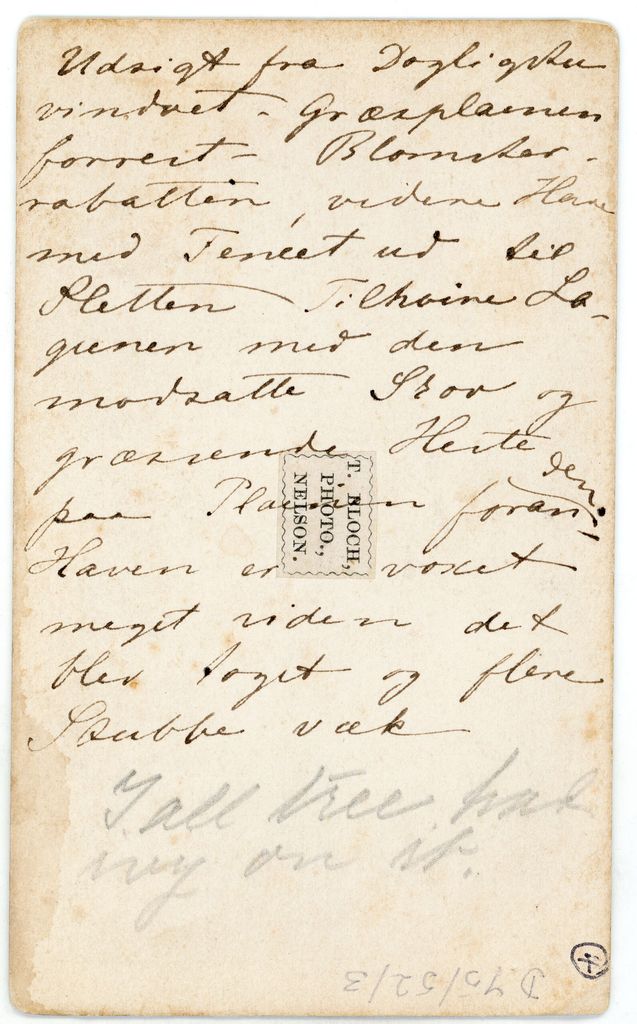 Udsigt fra Dagligstu
vinduet - Græsplainen
forrest - Blomster-
rabatten, videre Have
med Fencet ud til
Sletten Tilhøire La-
gunen med den
modsatte Skov og
græssende Heste
paa Plainen foran den.
Haven er voxet
meget siden det
blev taget og flere
Stubbe væk
T. BLOCH,
PHOTO.,
NELSON.
Tall tree had
ivy on it.
D 45/52/3